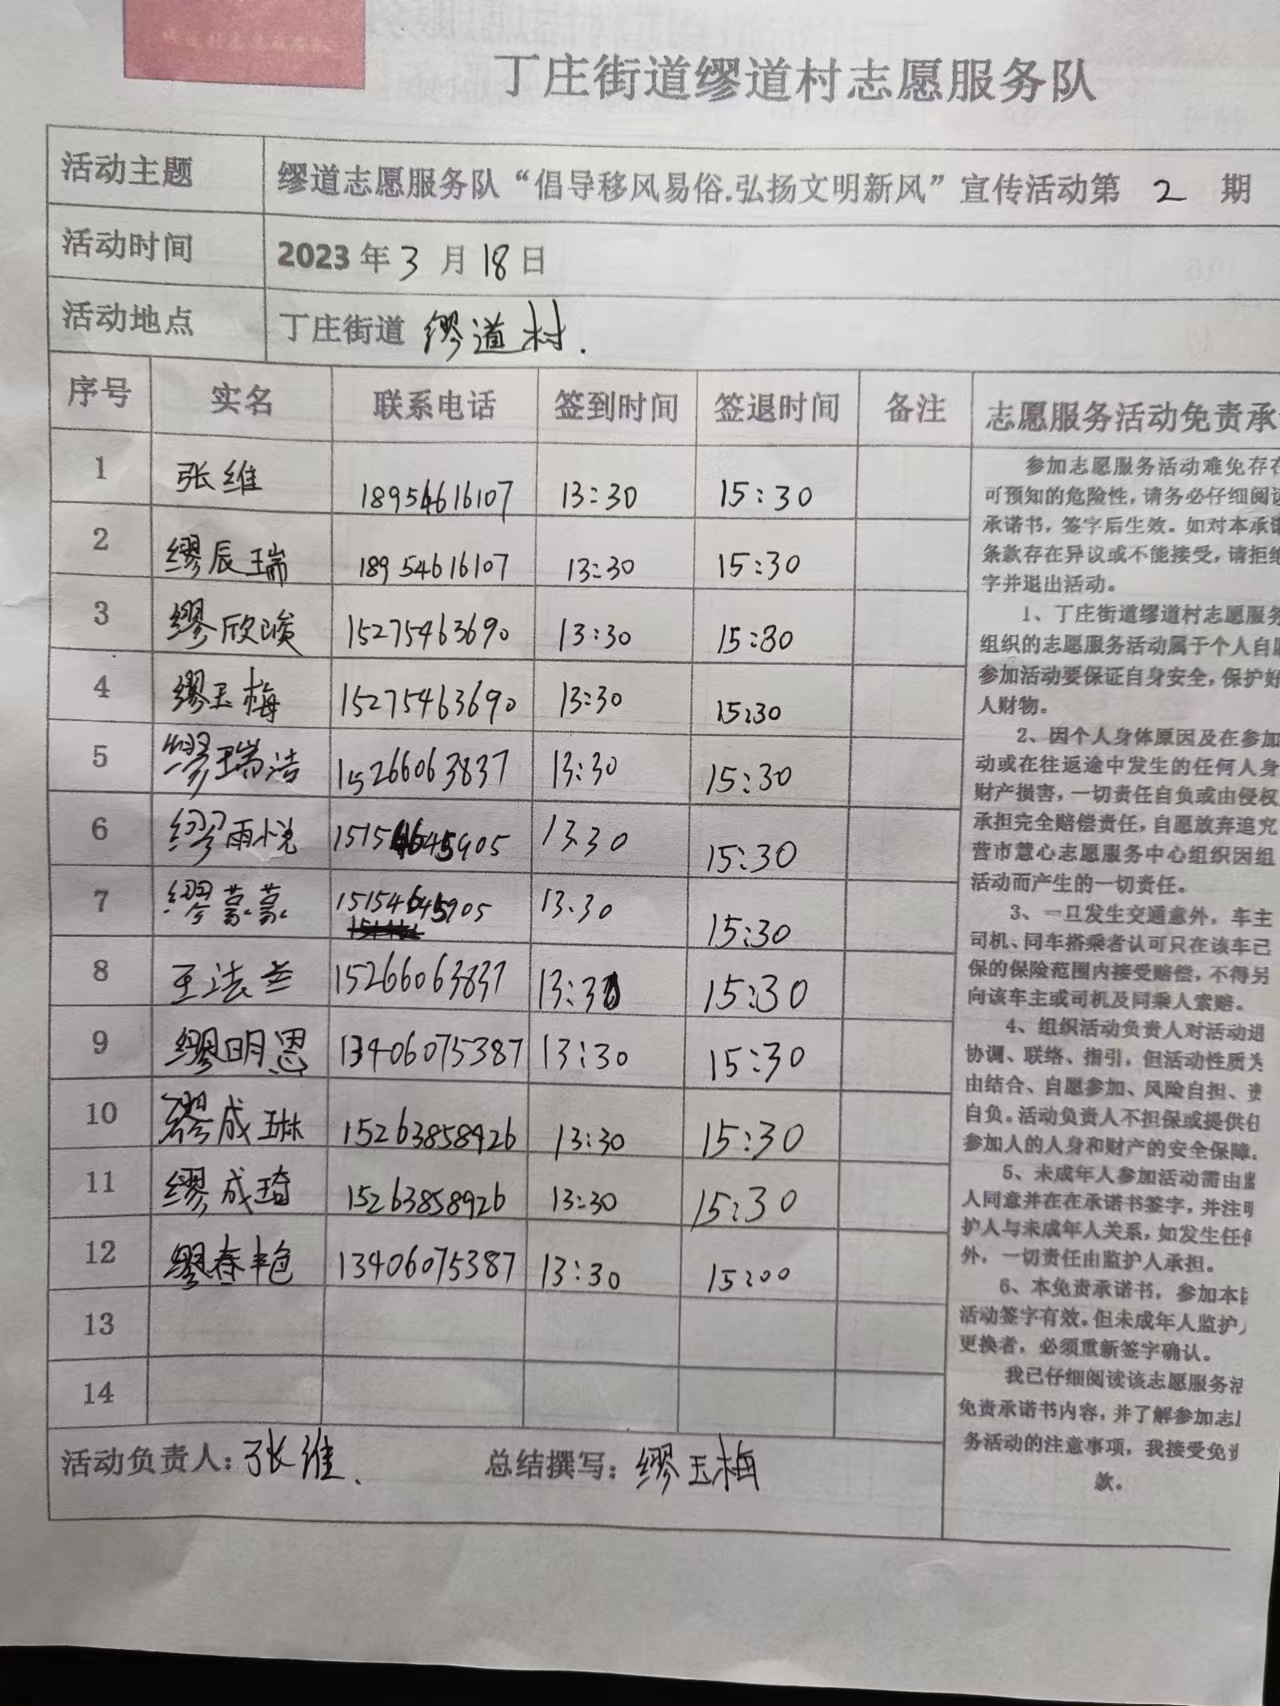 丁庄街道缪道村志愿服务队
活动主题 缪道志愿服务队“倡导移风易俗.弘扬文明新风”宣传活动第 2 期
活动时间 2023 年 3 月 18 日
活动地点 丁庄街道 缪道村.
序号 实名 联系电话 签到时间 签退时间 备注
1 张维 18954616107 13:30 15:30
2 缪辰瑞 18954616107 13:30 15:30
3 缪欣峻 15275463690 13:30 15:30
4 缪玉梅 15275463690 13:30 15:30
5 缪瑞洁 15266063837 13:30 15:30
6 缪雨悦 15154645905 13:30 15:30
7 缪 15154645905 13:30 15:30
8 王法兰 15266063837 13:30 15:30
9 缪明恩 13406075387 13:30 15:30
10 缪成琳 15263858926 13:30 15:30
11 缪成琦 15263858926 13:30 15:30
12 缪春艳 13406075387 13:30 15:00
13
14
活动负责人：张维. 总结撰写：缪玉梅
志愿服务活动免责承
参加志愿服务活动难免存在
可预知的危险性，请务必仔细阅读
承诺书，签字后生效。如对本承诺
条款存在异议或不能接受，请拒绝
字并退出活动。
1、丁庄街道缪道村志愿服务
组织的志愿服务活动属于个人自愿
参加活动要保证自身安全，保护好
人财物。
2、因个人身体原因及在参加
动或在往返途中发生的任何人身
财产损害，一切责任自负或由侵权
承担完全赔偿责任，自愿放弃追究
营市慧心志愿服务中心组织因组
活动而产生的一切责任。
3、一旦发生交通意外，车主
司机、同车搭乘者认可只在该车已
保的保险范围内接受赔偿，不得另
向该车主或司机及同乘人索赔。
4、组织活动负责人对活动进
协调、联络、指引，但活动性质为
由结合、自愿参加、风险自担、责
自负。活动负责人不担保或提供任
参加人的人身和财产的安全保障。
5、未成年人参加活动需由监
人同意并在在承诺书签字，并注明
护人与未成年人关系，如发生任何
外，一切责任由监护人承担。
6、本免责承诺书，参加本
活动签字有效。但未成年人监护人
更换者，必须重新签字确认。
我已仔细阅读该志愿服务活
免责承诺书内容，并了解参加志愿
务活动的注意事项，我接受免责
款。